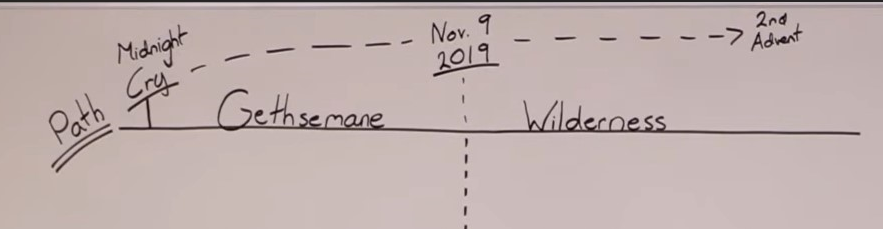 Midnight
Cry
Nov. 9
2019
2nd
Advent
Path
Gethsemane
Wilderness